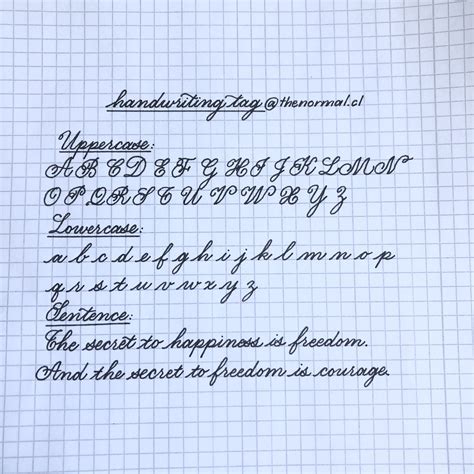 handwriting tag @thenormal.cl
Uppercase:
A B C D E F G H I J K L M N
O P Q R S T U V W X Y Z
Lowercase:
a b c d e f g h i j k l m n o p
q r s t u v w x y z
Sentence:
The secret to happiness is freedom.
And the secret to freedom is courage.